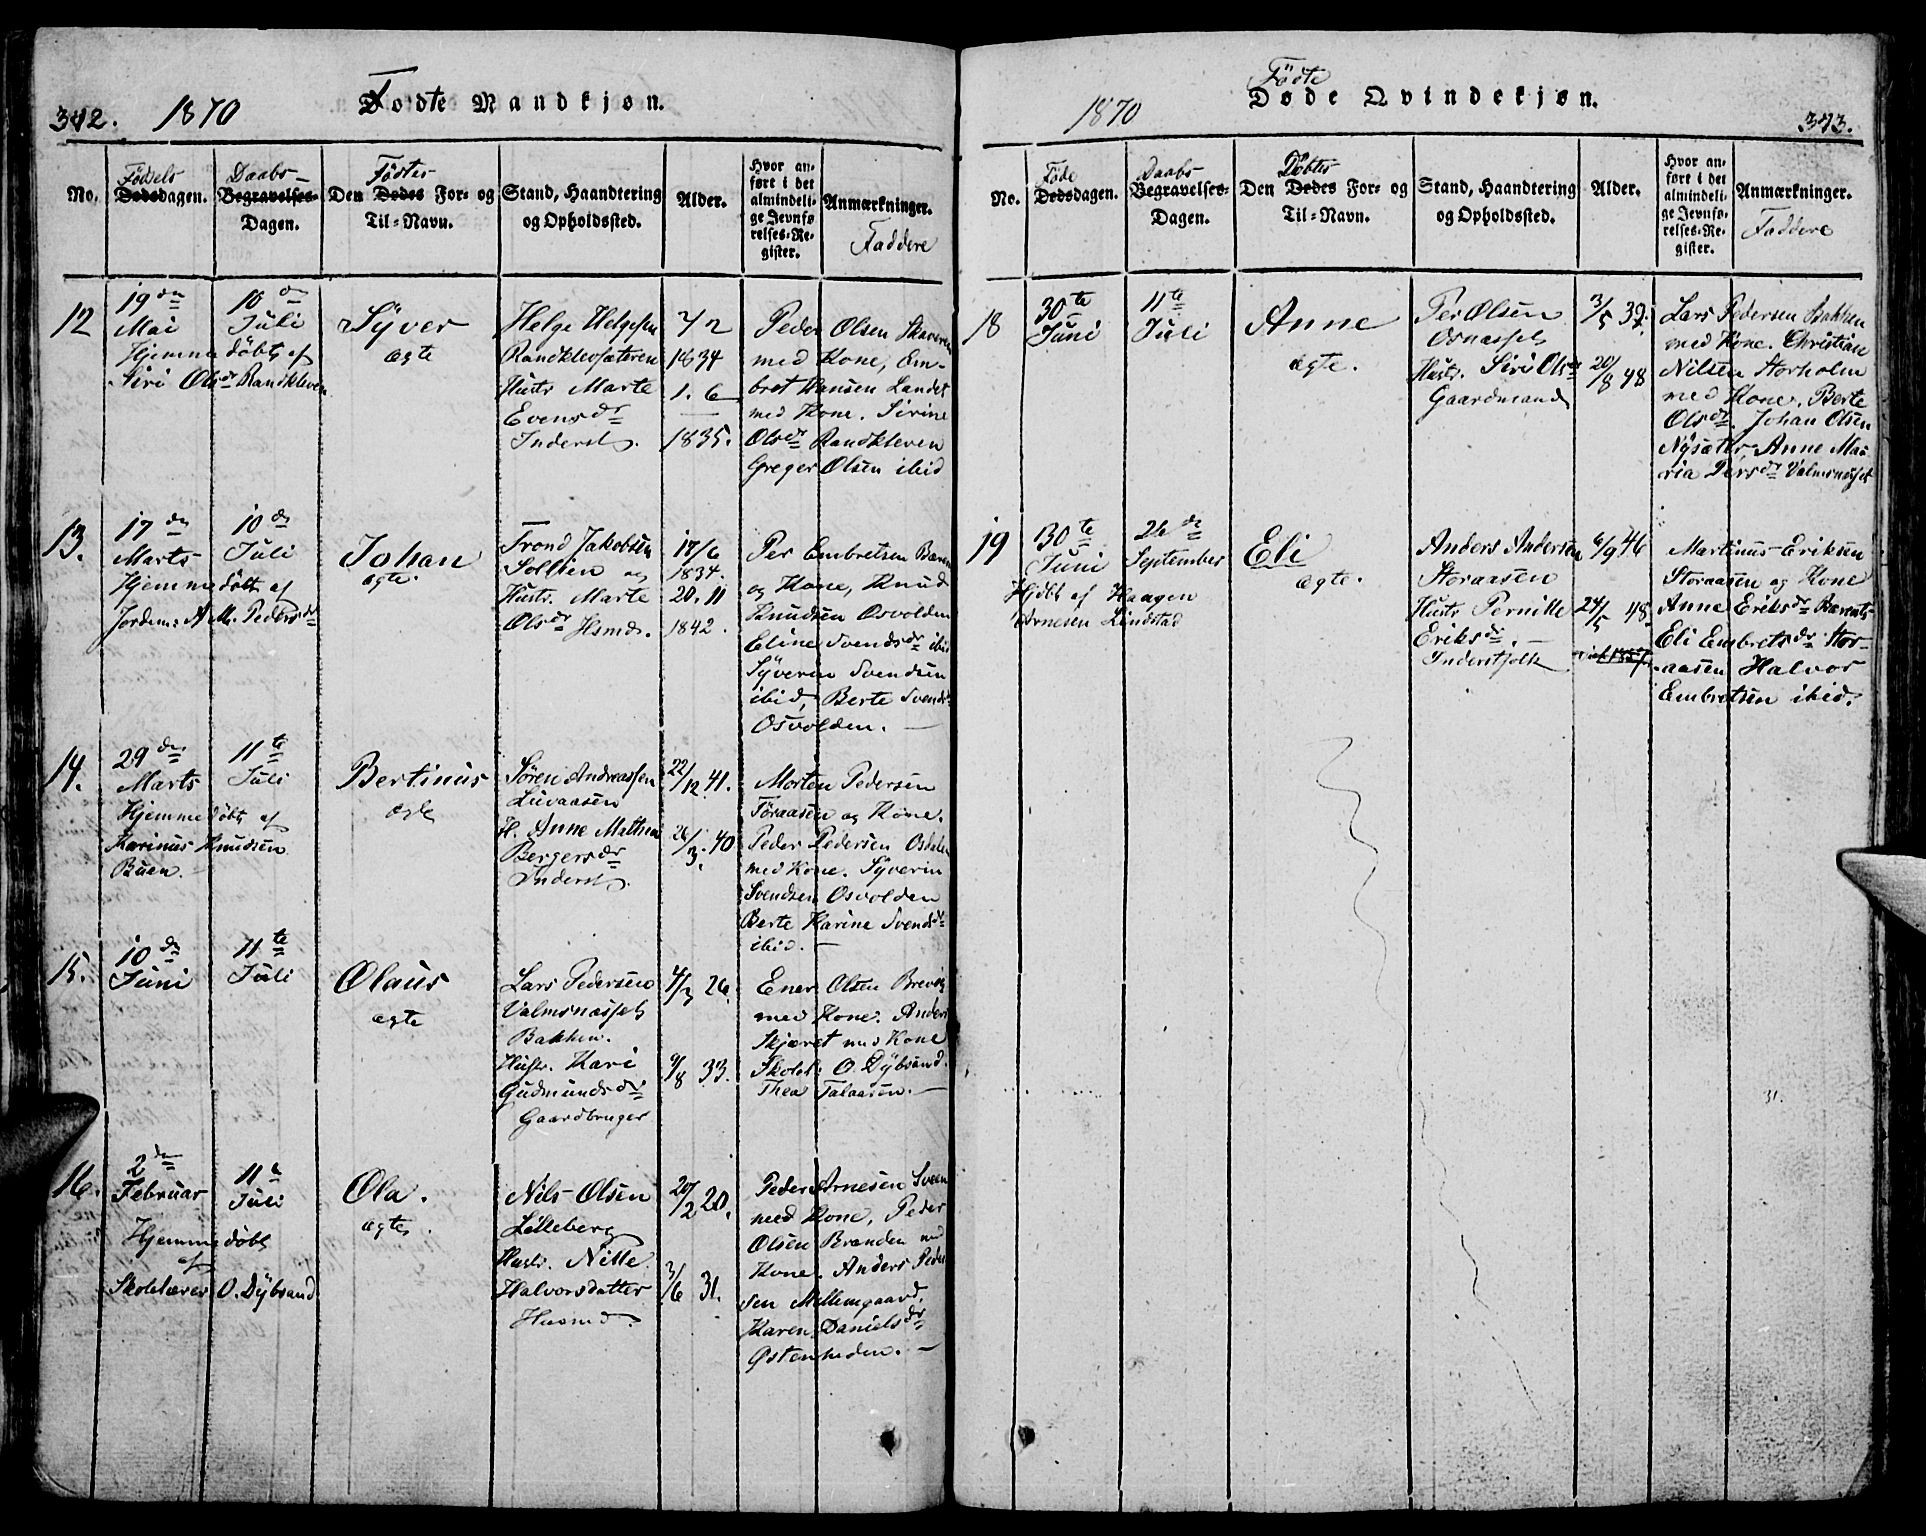 342.
1870
Födte Mandkjøn.
No.
Födsels
Dødsdagen.
Daabs-
Begravelses-
Dagen.
Födtes
Den Dødes For- og
Til-Navn.
Stand, Haandtering
og Opholdssted.
Alder.
Hvor an-
ført i det
almindeli-
ge Jevnfø-
relses-Re-
gister.
Anmærkninger.
Faddere
12
19de
Mai
Hjemmedöbt af
Siri Olsdr Randkleven
10de
Juli
Syver
ægte
Helge Helgesen
Randklevsæteren
Hustr Marte
Evensdr
Inderst.
7/2
1834
1. 6
1835.
Peder Olsen
med Kone, Em-
bret Hansen Landet
med Kone. Sirine
Olsdr Randkleven
Greger Olsen ibid
13.
17de
Marts
Hjemmedöbt af
Jordem: A M. Pedersdr
10de
Juli
Johan
ægte.
Trond Jakobsen
Sollien og
Hustr. Marte
Olsdr Hsmd.
17/6
1834.
20. 11
1842.
Per Embretsen
og Kone, Knud
Knudsen Osvolden
Eline Svendsdr ibid
Syverin Svendsen
ibid, Berte Svendsdr
Osvolden.
14.
29de
Marts
Hjemmedöbt af
Karinus Knudsen
Buen.
11te
Juli
Bertinus
ægte
Sören Andreassen
Luvaasen
H. Anne Mathea
Bergersdr
Inderst.
22/12 41.
26/3. 40
Morten Pedersen
Töraasen og Kone.
Peder Pedersen Osdalen
med Kone. Syverin
Svendsen Osvolden
Berte Karine Svendsdr
ibid.
15.
10de
Juni
11te
Juli
Olaus
ægte
Lars Pedersen
Valmsnæsset
Bakken.
Hustr. Kari
Gudmundsdr
Gaardbruger
4/3 26.
9/8 33.
Ener Olsen Brevig
med Kone. Anders
Skjæret med Kone
Skolel: O. Dybsand.
Thea Talaasen.
16.
2den
Februar
Hjemmedöbt
af
Skolelærer O. Dybsand
11te
Juli
Ola.
ægte.
Nils Olsen
Lilleberg
Hustr. Nille
Halvorsdatter
Husmd.
20/2 20.
3/6 31.
Peder Arnesen Sveen
med Kone, Peder
Olsen Brænden med
Kone. Anders Peder
sen Mellemgaard.
Karen Danielsdr
Østenheden.
1870
Födte
Døde Qvindekjøn.
343.
No.
Føde
Dødsdagen.
Daabs
Begravelses-
Dagen.
Döbtes
Den Dødes For- og
Til-Navn.
Stand, Haandtering
og Opholdssted.
Alder.
Hvor an-
ført i det
almindeli-
ge Jevnfø-
relses-Re-
gister.
Anmærkninger.
Faddere
18
30te
Juni
11te
Juli
Anne
ægte.
Per Olsen
Osnæsset
Hustr. Siri Olsdr
Gaardmand
3/5 39.
20/8 48
Lars Pedersen Bakken
med Kone. Christian
Nilsen Storholm
med Kone. Berte
Olsdr. Johan Olsen
Nysæter. Anne Ma-
ria Persdr Valmsnæsset
19
30te
Juni
Hjdöbt af Haagen
Arnesen Lindstad
26de
September
Eli
ægte.
Anders Andersen
Storaasen
Hustr Pernille
Eriksdr.
Inderstfolk
6/9 46
24/5 48.
Martinus Eriksen
Storaasen og Kone
Anne Eriksdr
Eli Embretsdr Stor-
aasen Halvor
Embretsen ibid.
31.